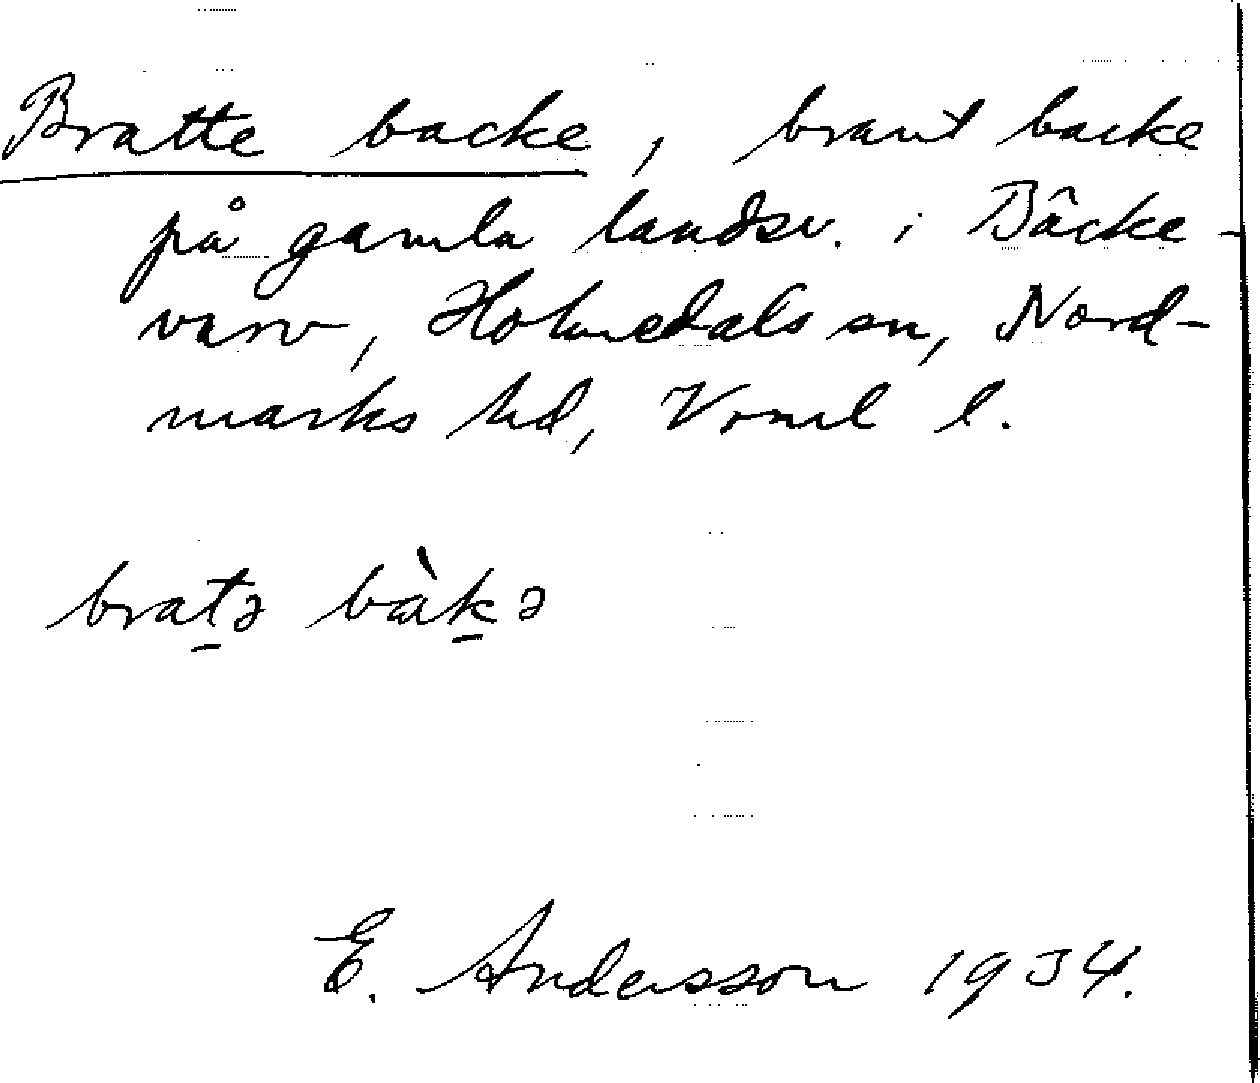 Bratte backe, brant backe
på gamla landsv. i Bäcke-
varv, Holmedals sn, Nord-
marks hd, Vrml l.
brat̠ə bàk̠ə
E. Andersson 1934.